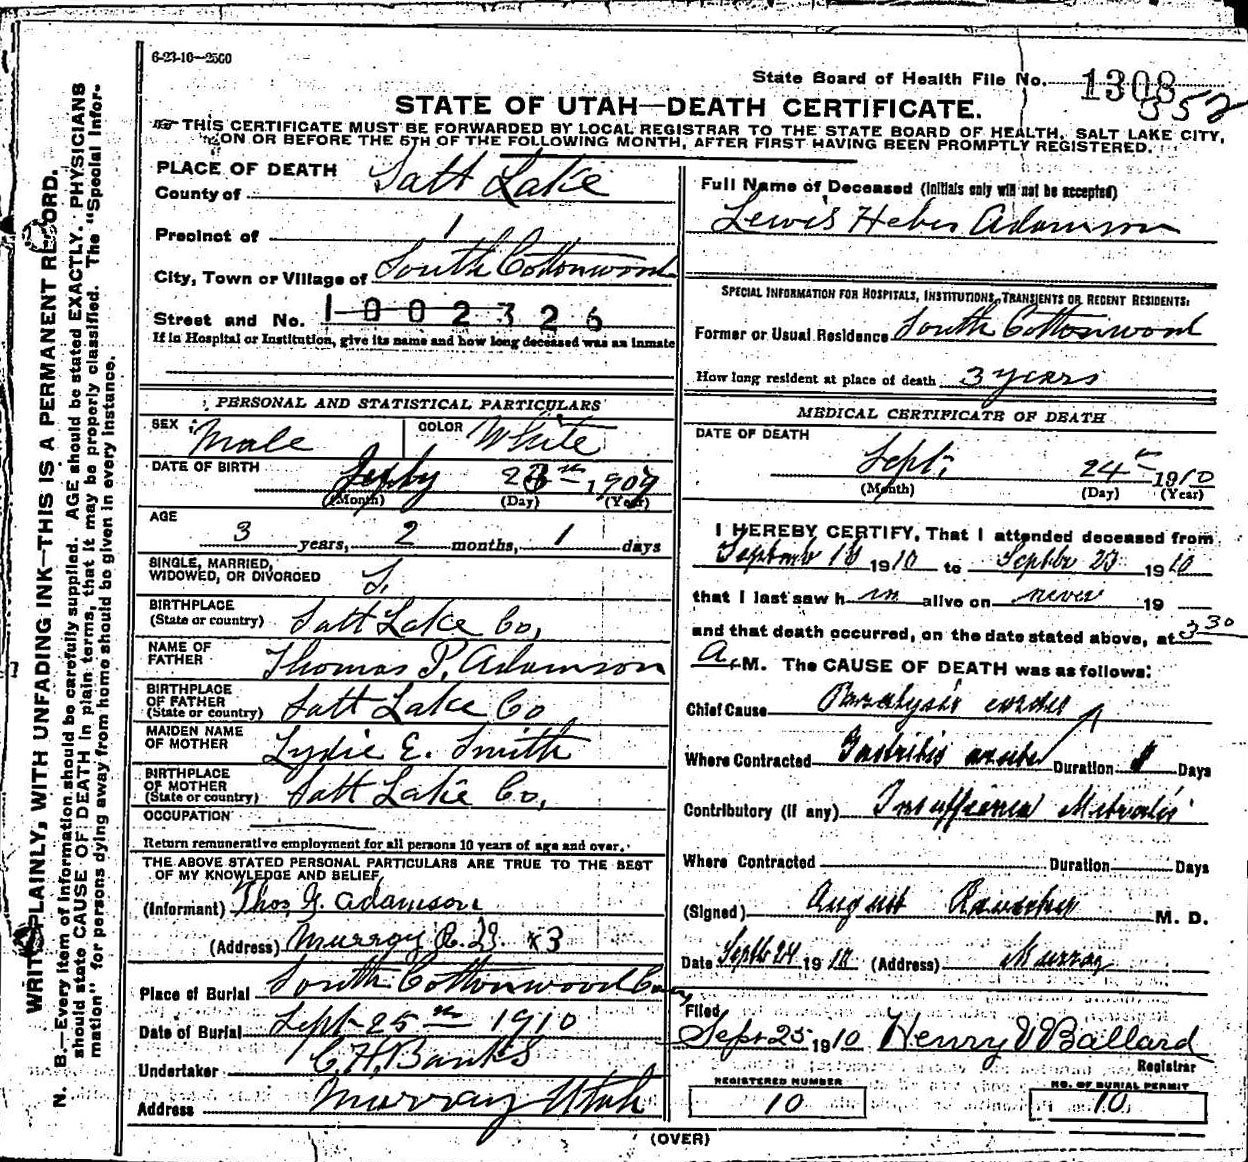 6-23-10—2500
State Board of Health File No. 1308
352
STATE OF UTAH—DEATH CERTIFICATE.
THIS CERTIFICATE MUST BE FORWARDED BY LOCAL REGISTRAR TO THE STATE BOARD OF HEALTH, SALT LAKE CITY,
ON OR BEFORE THE 5TH OF THE FOLLOWING MONTH, AFTER FIRST HAVING BEEN PROMPTLY REGISTERED.
WRITE PLAINLY, WITH UNFADING INK—THIS IS A PERMANENT RECORD.
N. B.—Every item of information should be carefully supplied. AGE should be stated EXACTLY. PHYSICIANS
should state CAUSE OF DEATH in plain terms, that it may be properly classified. The "Special Infor-
mation" for persons dying away from home should be given in every instance.
PLACE OF DEATH
County of Salt Lake
Precinct of 1
City, Town or Village of South Cottonwood
Street and No. 1002326
If in Hospital or Institution, give its name and how long deceased was an inmate
PERSONAL AND STATISTICAL PARTICULARS
SEX Male COLOR White
DATE OF BIRTH 1907
(Month) (Day) (Year)
AGE
3 years, 2 months, 1 days
SINGLE, MARRIED,
WIDOWED, OR DIVORCED S.
BIRTHPLACE
(State or country) Salt Lake Co,
NAME OF
FATHER Thomas P. Adamson
BIRTHPLACE
OF FATHER
(State or country) Salt Lake Co
MAIDEN NAME
OF MOTHER Lydie E. Smith
BIRTHPLACE
OF MOTHER
(State or country) Salt Lake Co,
OCCUPATION
Return remunerative employment for all persons 10 years of age and over.
THE ABOVE STATED PERSONAL PARTICULARS ARE TRUE TO THE BEST
OF MY KNOWLEDGE AND BELIEF,
(Informant) Thos Adamson
(Address) Murray R. 3
Place of Burial South Cottonwood
Date of Burial Sept 25th 1910
Undertaker C. H. Banks
Address Murray Utah
Full Name of Deceased (Initials only will not be accepted)
Lewis Heber Adamson
SPECIAL INFORMATION FOR HOSPITALS, INSTITUTIONS, TRANSIENTS OR RECENT RESIDENTS:
Former or Usual Residence South Cottonwood
How long resident at place of death 3 years
MEDICAL CERTIFICATE OF DEATH
DATE OF DEATH
Sept. 24th 1910
(Month) (Day) (Year)
I HEREBY CERTIFY, That I attended deceased from
September 1910 to Septbr 23 1910
that I last saw h im alive on never 19
and that death occurred, on the date stated above, at 3 30
A. M. The CAUSE OF DEATH was as follows:
Chief Cause Paralysis cordis
Where Contracted Gastritis acute Duration Days
Contributory (if any) Insufficiencia Mitralis
Where Contracted Duration Days
(Signed) August M. D.
Date Septbr 24 1910 (Address) Murray
Filed
Sept 25 1910 Henry V Ballard
Registrar
REGISTERED NUMBER
10
NO. OF BURIAL PERMIT
10
(OVER)